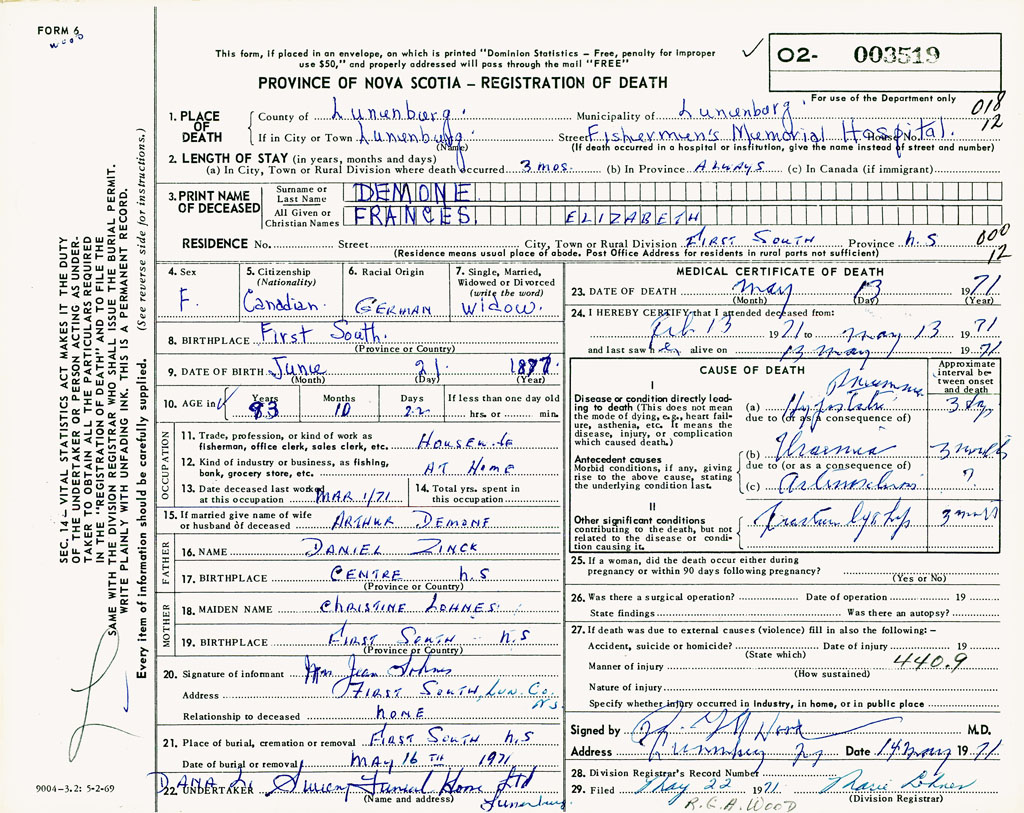 FORM 6
WOOD
This form, if placed in an envelope, on which is printed "Dominion Statistics – Free, penalty for improper
use $50," and properly addressed will pass through the mail "FREE"
PROVINCE OF NOVA SCOTIA – REGISTRATION OF DEATH
O2- 003519
For use of the Department only
018
12
1. PLACE OF DEATH
County of Lunenburg. Municipality of Lunenburg.
If in City or Town Lunenburg. Street Fishermen's Memorial Hospital. House No.
(Name) (If death occurred in a hospital or institution, give the name instead of street and number)
2. LENGTH OF STAY (in years, months and days)
(a) In City, Town or Rural Division where death occurred 3 mos. (b) In Province ALWAYS (c) In Canada (if immigrant)
3. PRINT NAME OF DECEASED
Surname or Last Name DEMONE
All Given or Christian Names FRANCES ELIZABETH
RESIDENCE No. Street City, Town or Rural Division FIRST SOUTH Province N.S
000
12
(Residence means usual place of abode. Post Office Address for residents in rural parts not sufficient)
4. Sex F.
5. Citizenship (Nationality) Canadian.
6. Racial Origin GERMAN
7. Single, Married, Widowed or Divorced (write the word) Widow.
8. BIRTHPLACE First South.
(Province or Country)
9. DATE OF BIRTH June 21 1887
(Month) (Day) (Year)
10. AGE in Years 83 Months 10 Days 22 If less than one day old hrs. or min.
OCCUPATION
11. Trade, profession, or kind of work as fisherman, office clerk, sales clerk, etc. HOUSEWIFE
12. Kind of industry or business, as fishing, bank, grocery store, etc. AT HOME
13. Date deceased last worked at this occupation MAR 1/71
14. Total yrs. spent in this occupation
15. If married give name of wife or husband of deceased ARTHUR DEMONE
FATHER
16. NAME DANIEL ZINCK
17. BIRTHPLACE CENTRE N.S
(Province or Country)
MOTHER
18. MAIDEN NAME CHRISTINE LOHNES
19. BIRTHPLACE FIRST SOUTH N.S
(Province or Country)
20. Signature of informant Jean Lohnes
Address FIRST SOUTH, Lun. Co. N.S.
Relationship to deceased NONE
21. Place of burial, cremation or removal FIRST SOUTH N.S
Date of burial or removal MAY 16 TH 1971
22. UNDERTAKER DANA L. Sweeny Funeral Home Ltd
(Name and address) Lunenburg
MEDICAL CERTIFICATE OF DEATH
23. DATE OF DEATH May 13 1971
(Month) (Day) (Year)
24. I HEREBY CERTIFY that I attended deceased from:
Feb 13 1971 to May 13 1971
and last saw her alive on 13 May 1971
CAUSE OF DEATH
Approximate interval between onset and death
I
Disease or condition directly leading to death (This does not mean the mode of dying, e.g., heart failure, asthenia, etc. It means the disease, injury, or complication which caused death.)
(a) Hypostatic Pneumonia 3 days
due to (or as a consequence of)
Antecedent causes
Morbid conditions, if any, giving rise to the above cause, stating the underlying condition last.
(b) Uraemia 3 months
due to (or as a consequence of)
(c) ?
II
Other significant conditions contributing to the death, but not related to the disease or condition causing it.
Fracture hip 3 months
25. If a woman, did the death occur either during pregnancy or within 90 days following pregnancy?
(Yes or No)
26. Was there a surgical operation? Date of operation 19
State findings Was there an autopsy?
27. If death was due to external causes (violence) fill in also the following: –
Accident, suicide or homicide? Date of injury 19
(State which)
440.9
Manner of injury
(How sustained)
Nature of injury
Specify whether injury occurred in industry, in home, or in public place
Signed by Wood M.D.
Address Lunenburg NS Date 14 May 1971
28. Division Registrar's Record Number
29. Filed May 22 1971 Marie Lohnes
(Division Registrar)
R.G.A. WOOD
SEC. 14 – VITAL STATISTICS ACT MAKES IT THE DUTY
OF THE UNDERTAKER OR PERSON ACTING AS UNDER-
TAKER TO OBTAIN ALL THE PARTICULARS REQUIRED
IN THE "REGISTRATION OF DEATH" AND TO FILE THE
SAME WITH THE DIVISION REGISTRAR WHO SHALL ISSUE THE BURIAL PERMIT.
WRITE PLAINLY WITH UNFADING INK. THIS IS A PERMANENT RECORD.
Every item of information should be carefully supplied. (See reverse side for instructions.)
9004-3.2: 5-2-69